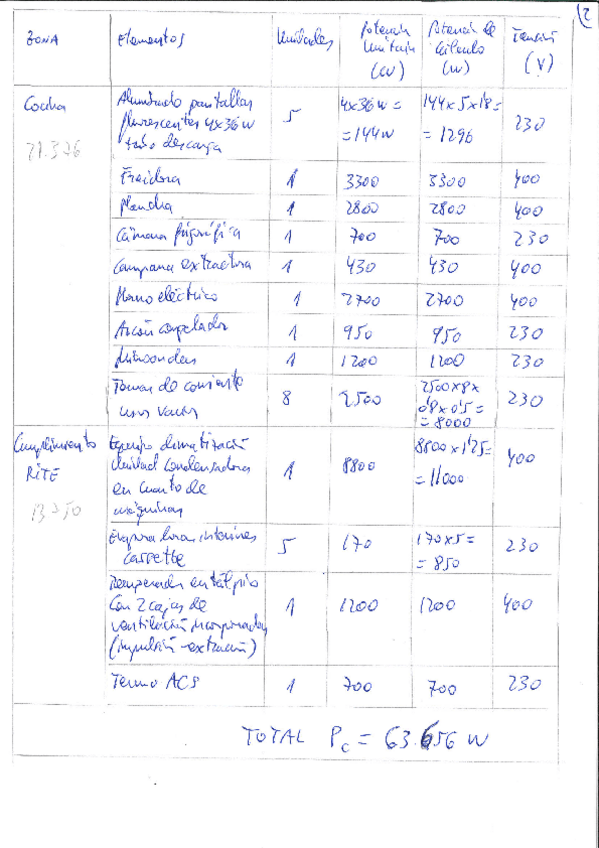 2
ZONA Elementos Unidades Potencia Unitaria (W) Potencia de Cálculo (W) Tensión (V)
Cocina Alumbrado pantallas 5 4x36w = 144x5x1'8= 230
21.376 fluorescentes 4x36w =144w = 1296
tubo descarga
Freidora 1 3300 3300 400
Plancha 1 2800 2800 400
Cámara frigorífica 1 700 700 230
Campana extractora 1 430 430 400
Horno eléctrico 1 2700 2700 400
Arcón congelador 1 950 950 230
Microondas 1 1200 1200 230
Tomas de corriente 8 2500 2500x8x 230
usos varios 0'8x0'5=
= 8000
Cumplimiento Equipo climatización 1 8800 8800x1'25= 400
RITE Unidad Condensadora = 11000
13750 en cuarto de
máquinas
Evaporadoras interiores 5 170 170x5= 230
cassette = 850
Recuperador entálpico 1 1200 1200 400
Con 2 cajas de
ventilación incorporadas
(impulsión-extracción)
Termo ACS 1 700 700 230
TOTAL Pc = 63.656 W